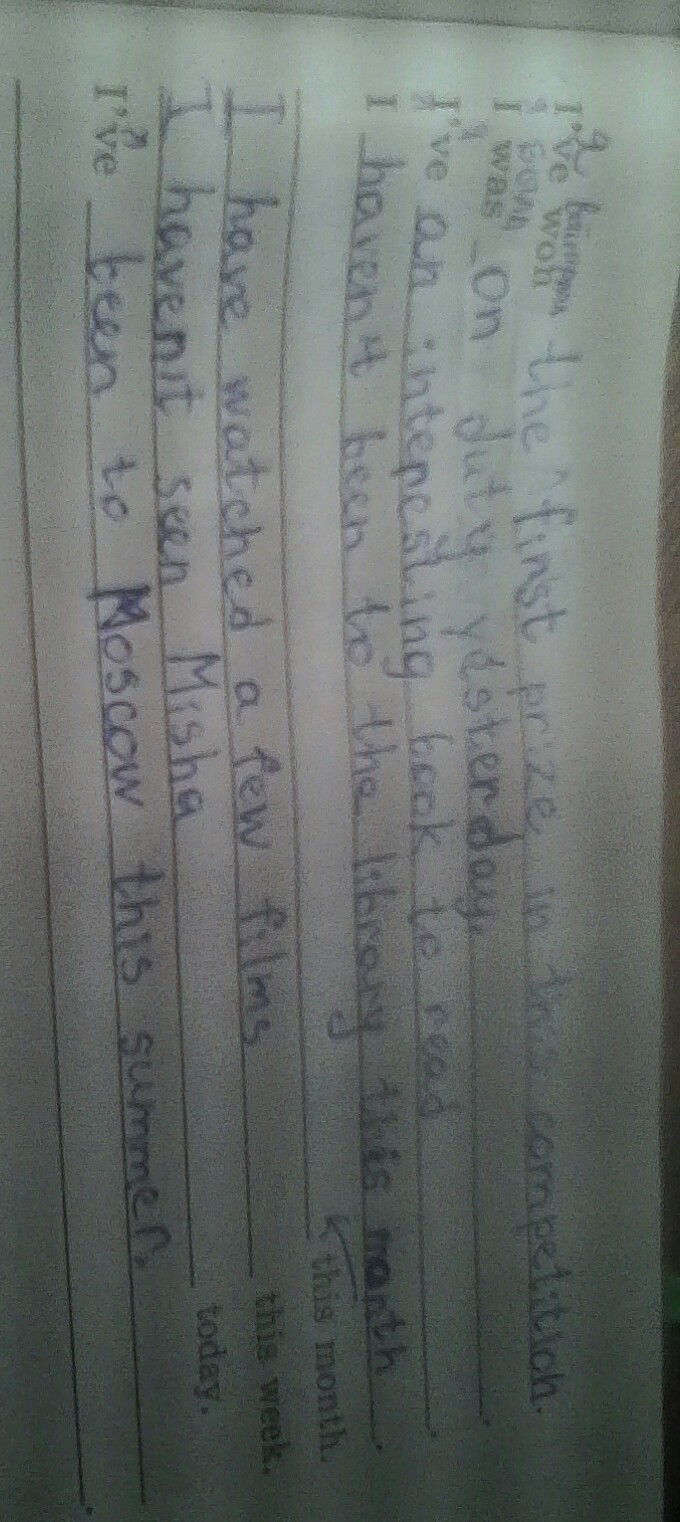 I've won the first prize in this competition.
I was on duty yesterday.
I've an interesting book to read.
I haven't been to the library this month.
this month.
I have watched a few films this week.
I haven't seen Misha today.
I've been to Moscow this summer.